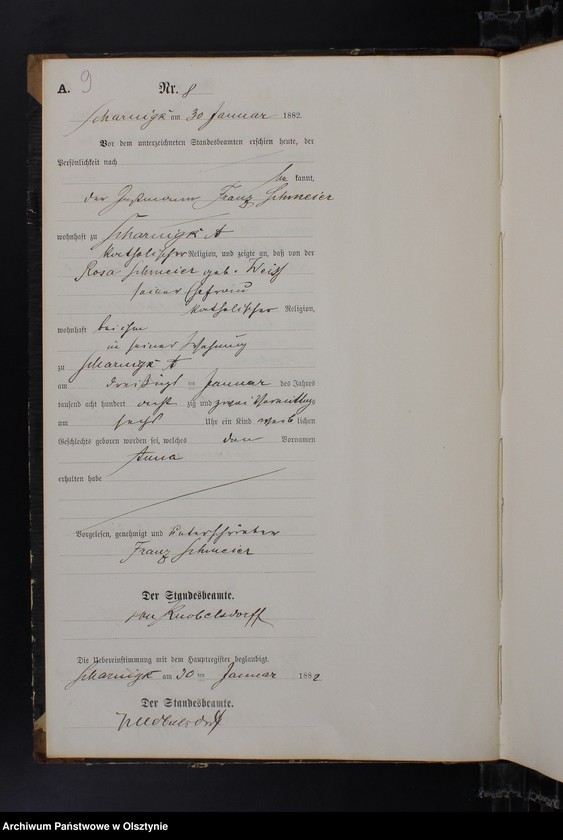 A. 9 Nr. 8
Scharnigk am 30 Januar 1882.
Vor dem unterzeichneten Standesbeamten erschien heute, der
Persönlichkeit nach
be kannt,
der Instmann Franz Schmeier
wohnhaft zu Scharnigk A
katholischer Religion, und zeigte an, daß von der
Rosa Schmeier geb. Weiß
seiner Ehefrau
katholischer Religion,
wohnhaft bei ihm
in seiner Wohnung
zu Scharnigk A
am dreißigst en Januar des Jahres
tausend acht hundert acht zig und zwei Vormittags
um sechs Uhr ein Kind weib lichen
Geschlechts geboren worden sei, welches den Vornamen
Anna
erhalten habe
Vorgelesen, genehmigt und unterschrieben
Franz Schmeier
Der Standesbeamte.
von Knobelsdorff
Die Uebereinstimmung mit dem Hauptregister beglaubigt.
Scharnigk am 30 ten Januar 1882
Der Standesbeamte.
Archiwum Państwowe w Olsztynie